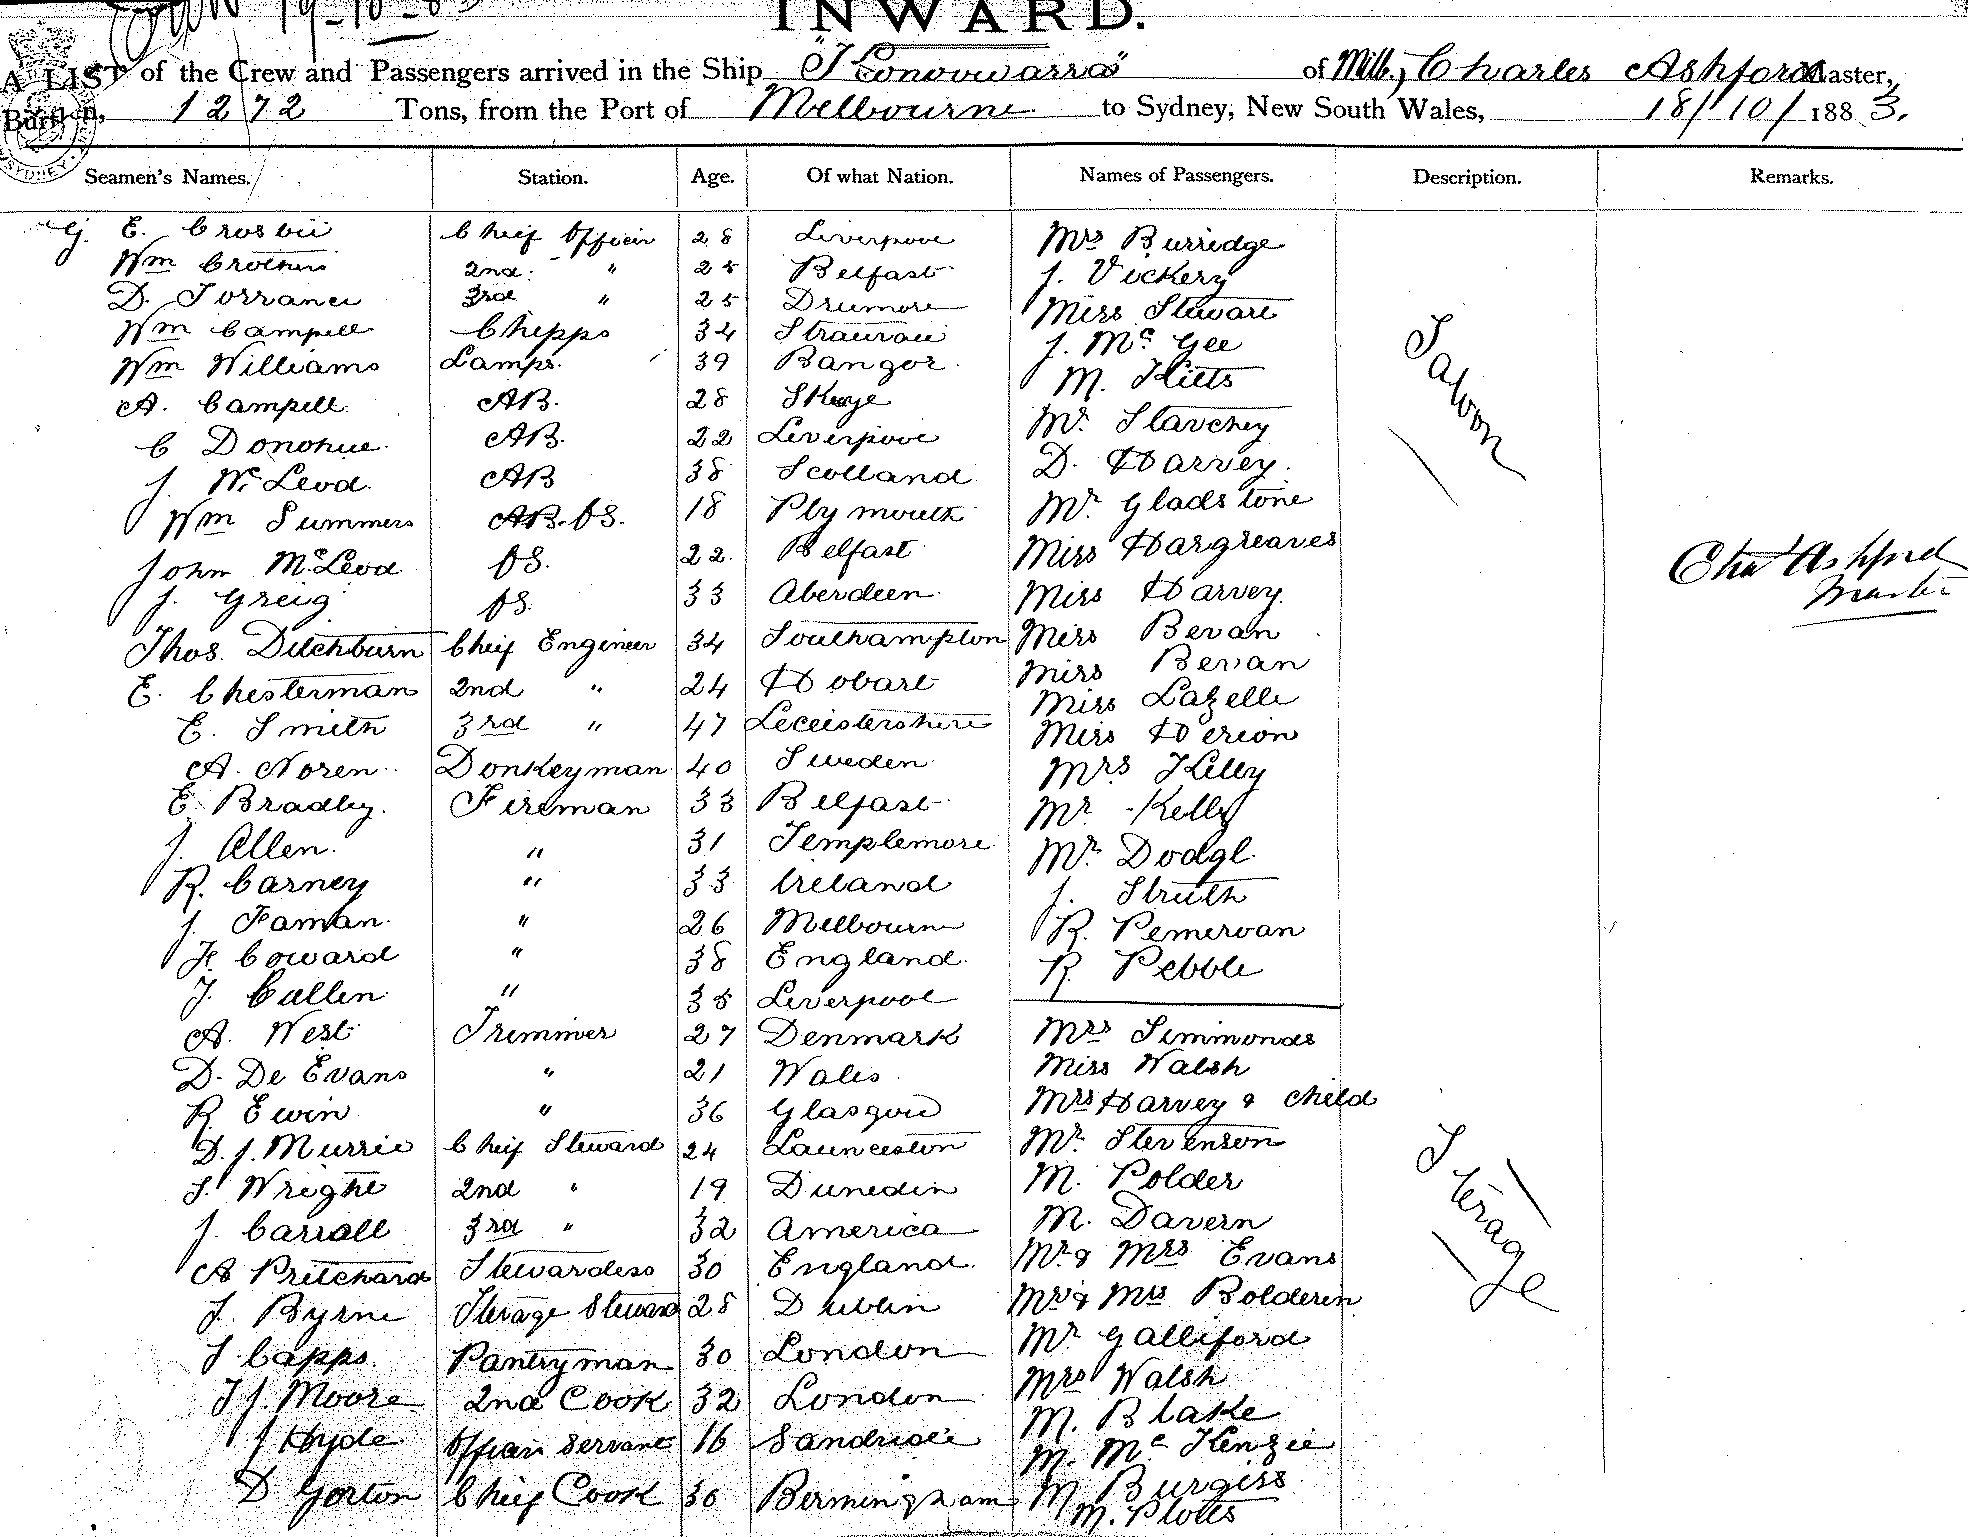 19-10-83
INWARD.
A LIST of the Crew and Passengers arrived in the Ship "Konoowarra" of Melb., Charles Ashford Master,
Burthen, 1272 Tons, from the Port of Melbourne to Sydney, New South Wales, 18/10/1883.
Seamen's Names. Station. Age. Of what Nation. Names of Passengers. Description. Remarks.
E. Crosbie Chief Officer 28 Liverpool Mrs Burridge
Wm Crothers 2nd. " 25 Belfast J. Vickery
D. Torrance 3rd " 25 Drumore Miss Stewart
Wm Campell Chipps 34 Stranraer J. McGee
Wm Williams Lamps. 39 Bangor M. Kitts
A. Campell AB. 28 Skye Mr. Stavchey Saloon
C Donohue AB. 22 Liverpool D. Harvey.
J. McLeod. AB 38 Scotland Mr. Gladstone
Wm Summers OS. 18 Plymouth Miss Hargreaves
John McLeod OS. 22 Belfast Miss Harvey. Chas Ashford
J. Greig OS. 33 Aberdeen Miss Bevan Master
Thos. Ditchburn Chief Engineer 34 Southampton Miss Bevan
E. Chesterman 2nd " 24 Hobart Miss Lazelle
E. Smith 3rd " 47 Leceistershire Miss Herion
A. Noren Donkeyman 40 Sweden Mrs Kelly
E. Bradley. Fireman 33 Belfast Mr. Kelly
J. Allen. " 31 Templemore Mr. Dodgl.
R. Carney " 33 Ireland J. Struth
J. Faman. " 26 Melbourne R. Pemervan
F. Coward " 38 England R. Pebble
J. Cullen " 35 Liverpool
A. West Trimmer 27 Denmark Mrs Simmonds
D. De Evans " 21 Wales Miss Walsh
R Ewin " 36 Glasgow Mrs Harvey & child
D. J. Murrie Chief Steward 24 Launceston Mr. Stevenson
S. Wright 2nd " 19 Dunedin M. Polder Sterage
J. Carrall 3rd " 32 America M. Davern
A Pritchard Stewardess 30 England Mr. & Mrs Evans
J. Byrne Sterage Steward 28 Dublin Mr & Mrs Bolderin
S. Capps. Pantryman 30 London Mr Galliford
T J. Moore 2nd Cook 32 London Mrs Walsh
J Hyde Officers Servant 16 Sandridge M. Blake
D Gorton Chief Cook 30 Bermingham M. McKenzie
M. Burgiss
M. Plotts